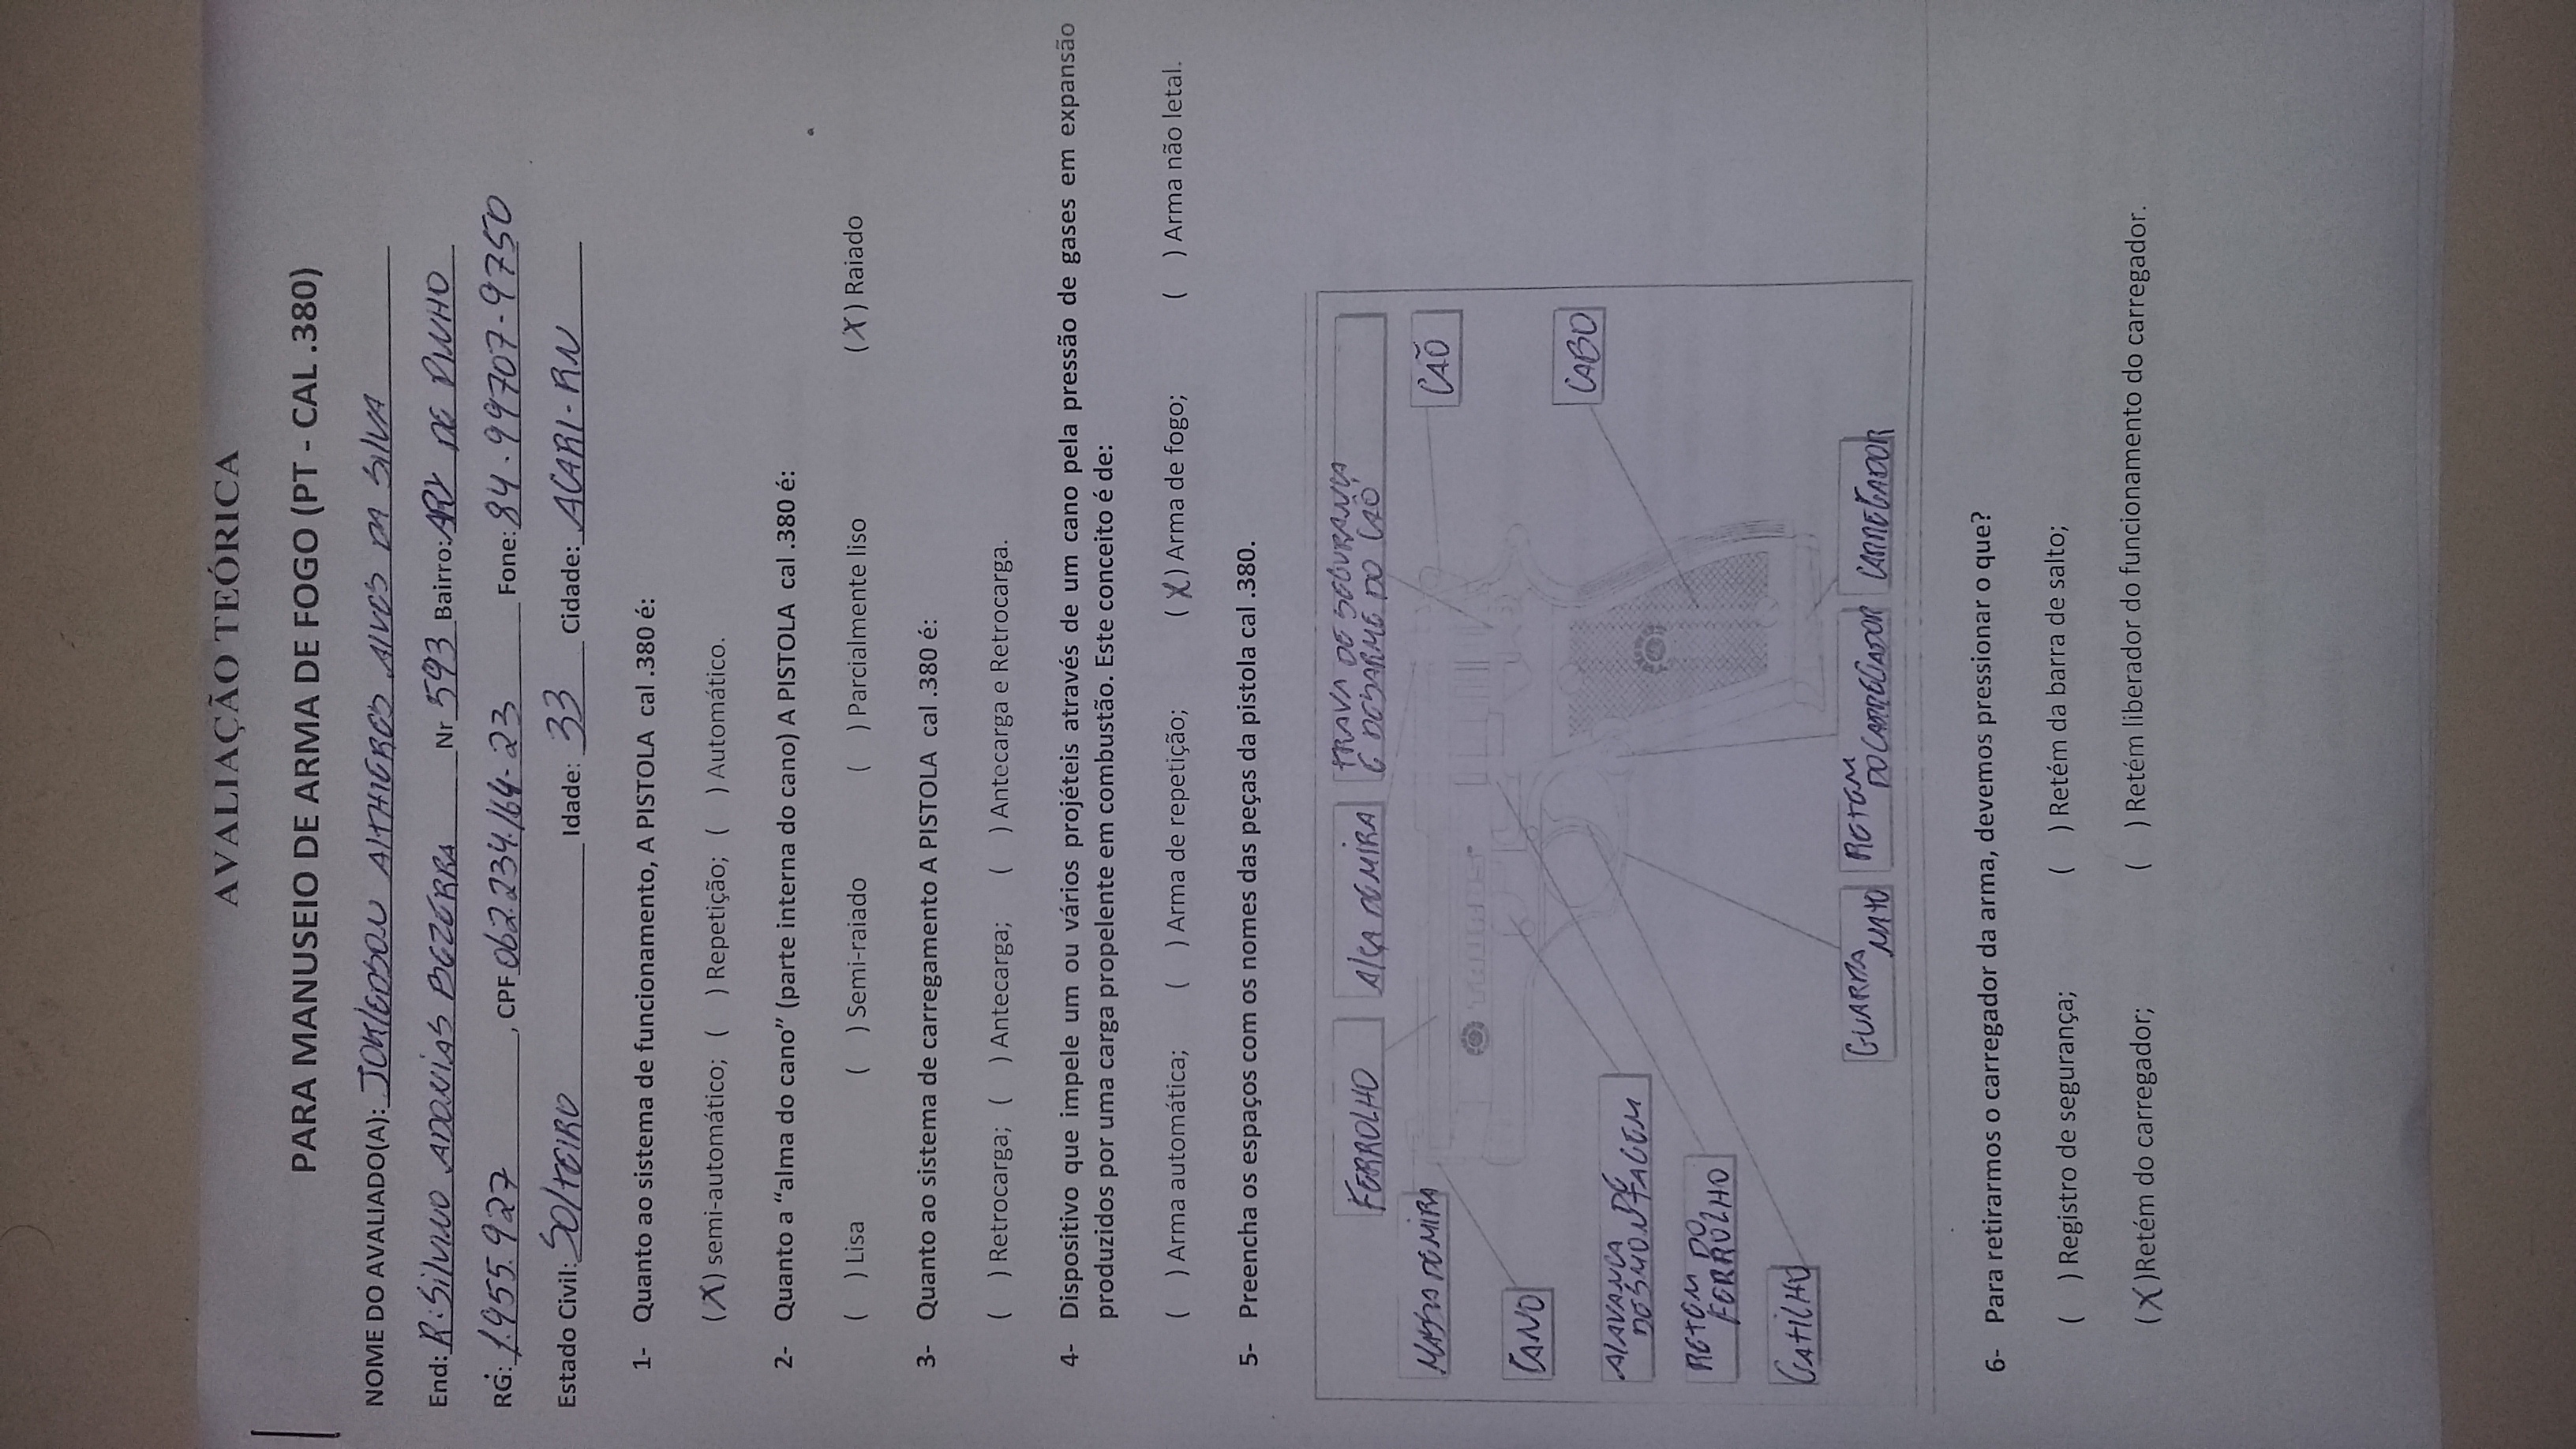 AVALIAÇÃO TEÓRICA
PARA MANUSEIO DE ARMA DE FOGO (PT - CAL .380)
NOME DO AVALIADO(A): JOKLEDSON ALTHIERES ALVES DA SILVA
End: R: SILVINO ADONIAS BEZERRA Nr 593 Bairro: ARY DE PINHO
RG: 1.955.927, CPF 062.234.164-23 Fone: 84.99707-9750
Estado Civil: SOLTEIRO Idade: 33 Cidade: ACARI-RN
1- Quanto ao sistema de funcionamento, A PISTOLA cal .380 é:
(X) semi-automático; ( ) Repetição; ( ) Automático.
2- Quanto a “alma do cano” (parte interna do cano) A PISTOLA cal .380 é:
( ) Lisa ( ) Semi-raiado ( ) Parcialmente liso (X) Raiado
3- Quanto ao sistema de carregamento A PISTOLA cal .380 é:
( ) Retrocarga; ( ) Antecarga; ( ) Antecarga e Retrocarga.
4- Dispositivo que impele um ou vários projéteis através de um cano pela pressão de gases em expansão
produzidos por uma carga propelente em combustão. Este conceito é de:
( ) Arma automática; ( ) Arma de repetição; (X) Arma de fogo; ( ) Arma não letal.
5- Preencha os espaços com os nomes das peças da pistola cal .380.
FERROLHO ALÇA DE MIRA TRAVA DE SEGURANÇA
E DESARME DO CÃO
MASSA DE MIRA
CÃO
TAURUS
CANO
CABO
ALAVANCA DE
DESMONTAGEM
RETEM DO
FERROLHO
GATILHO
GUARDA
MATO
RETEM
DO CARREGADOR
CARREGADOR
6- Para retirarmos o carregador da arma, devemos pressionar o que?
( ) Registro de segurança; ( ) Retém da barra de salto;
(X)Retém do carregador; ( ) Retém liberador do funcionamento do carregador.